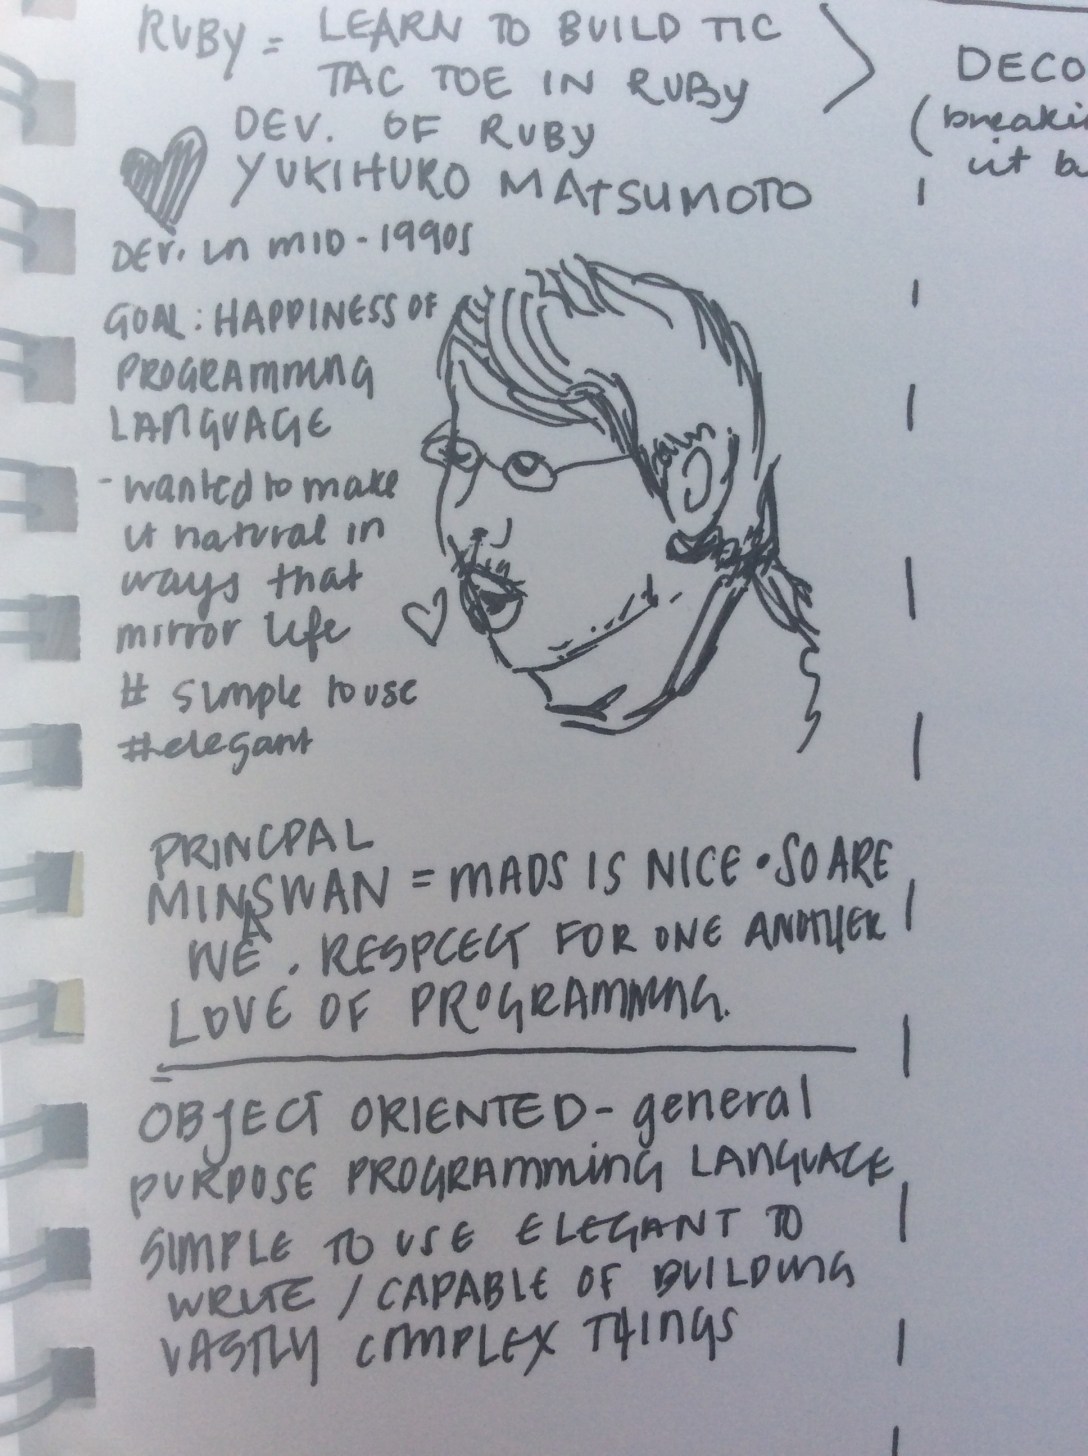 RUBY = LEARN TO BUILD TIC
TAC TOE IN RUBY
DEV. OF RUBY
YUKIHURO MATSUMOTO
DEV. in MID-1990s
GOAL: HAPPINESS OF
PROGRAMMING
LANGUAGE
- wanted to make
it natural in
ways that
mirror life
# simple to use
#elegant
PRINCPAL
MINSWAN = MADS IS NICE • SO ARE
WE. RESPCECT FOR ONE ANOTHER
LOVE OF PROGRAMMING.
OBJECT ORIENTED - general
PURPOSE PROGRAMMING LANGUAGE
SIMPLE TO USE ELEGANT TO
WRITE / CAPABLE OF BUILDING
VASTLY COMPLEX THINGS
DECO
(breaki
it b